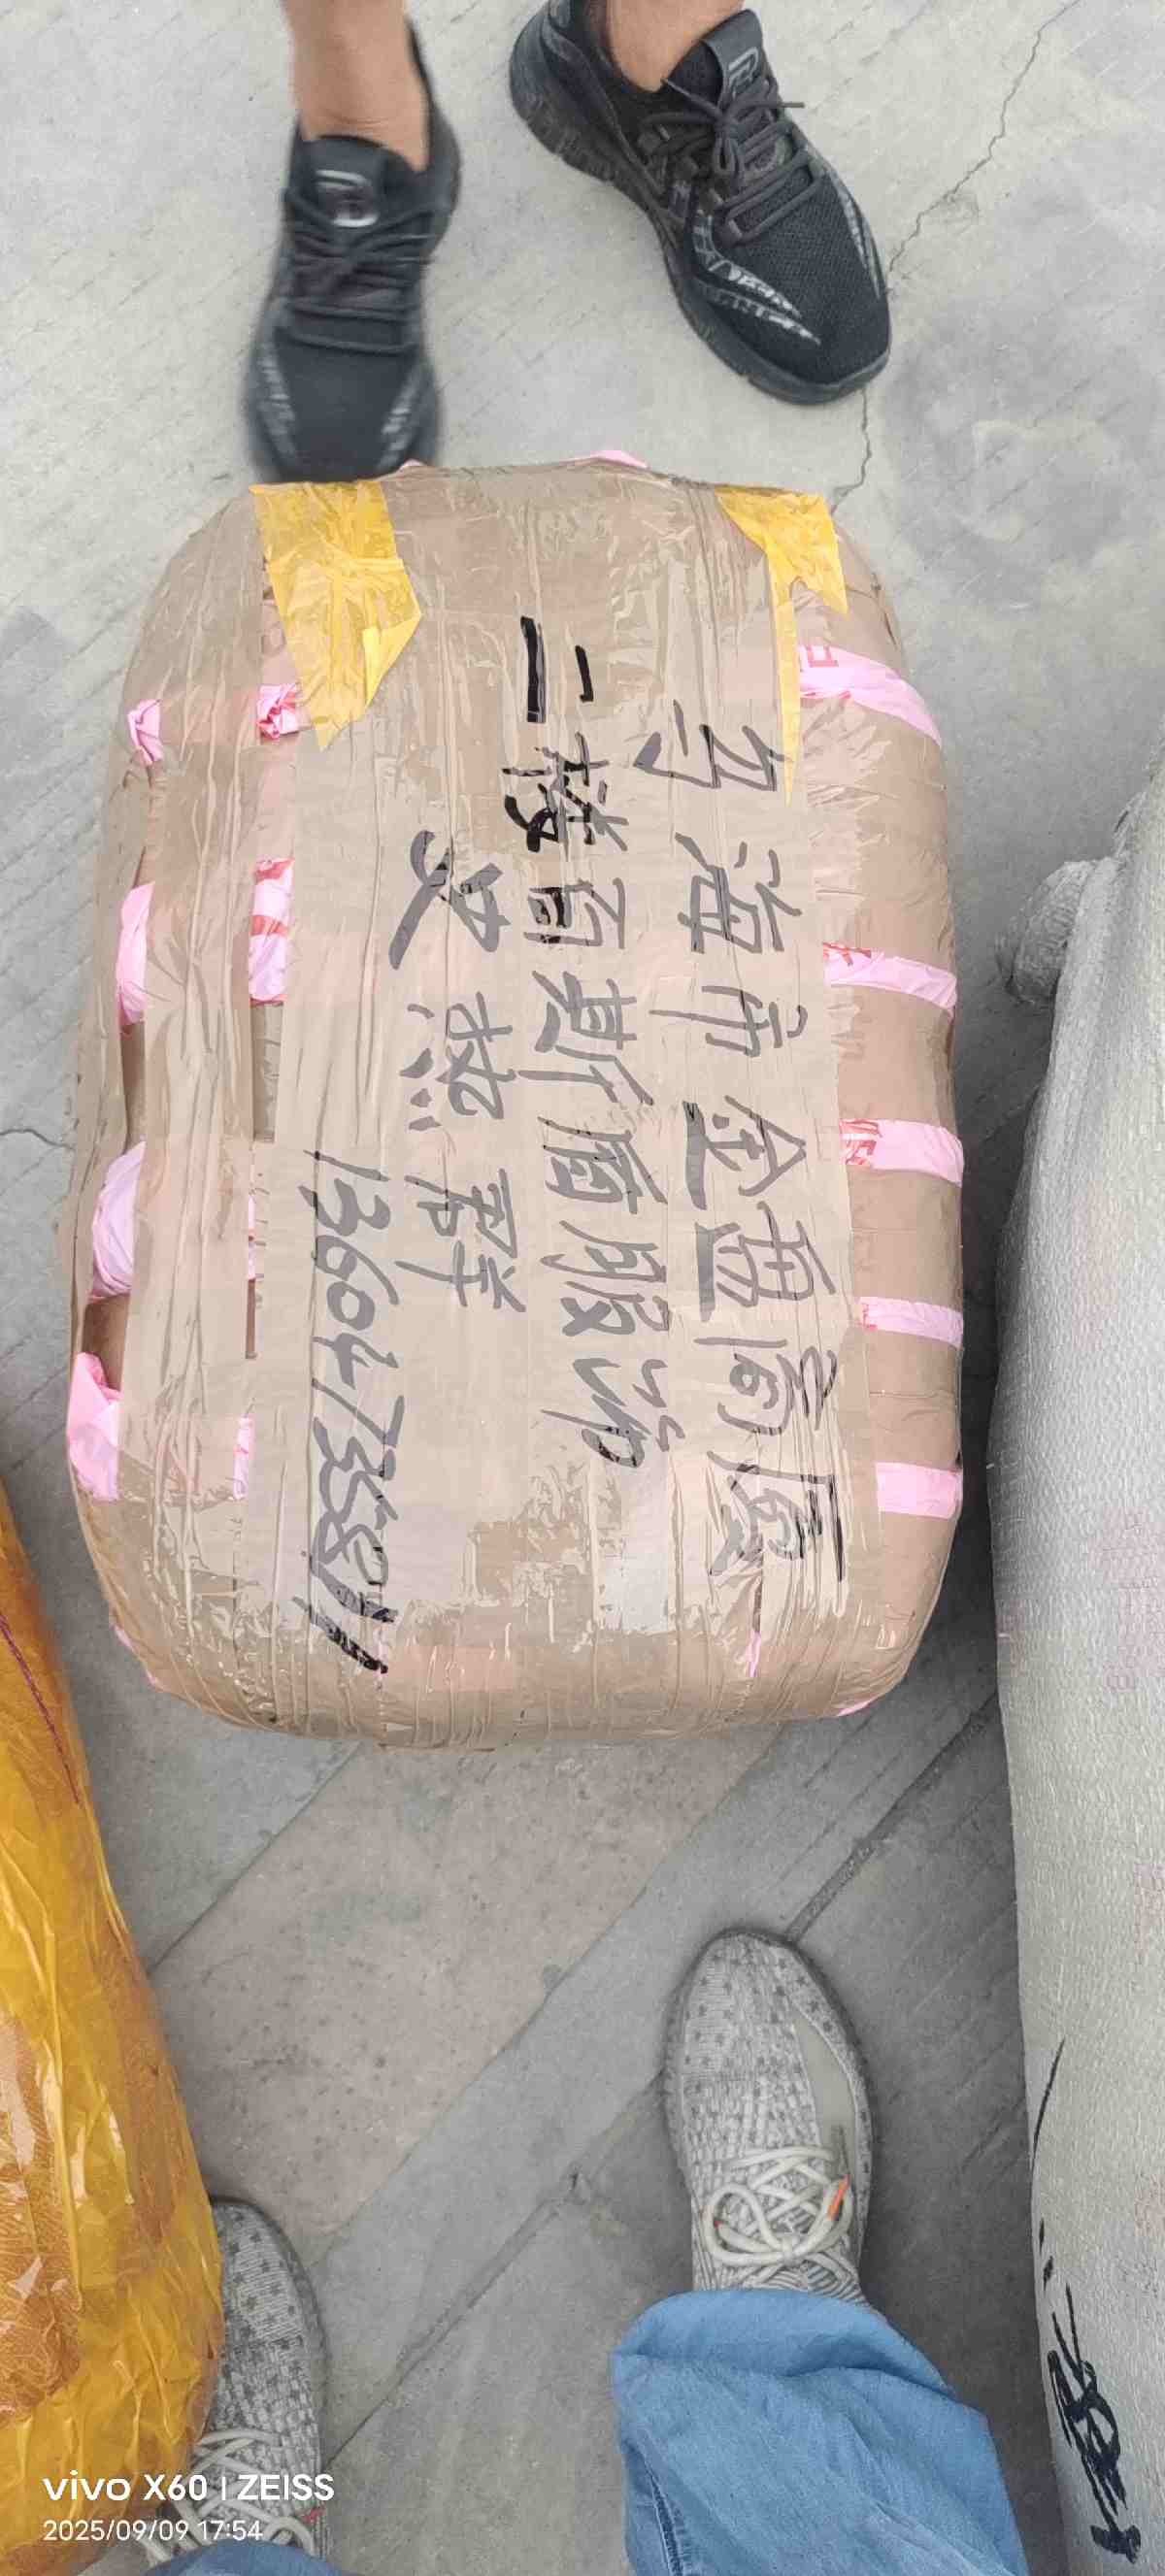 乌海市金西商厦
一二楼百斯盾服饰
收 燕 霞
13604735811
vivo X60 | ZEISS
2025/09/09 17:54